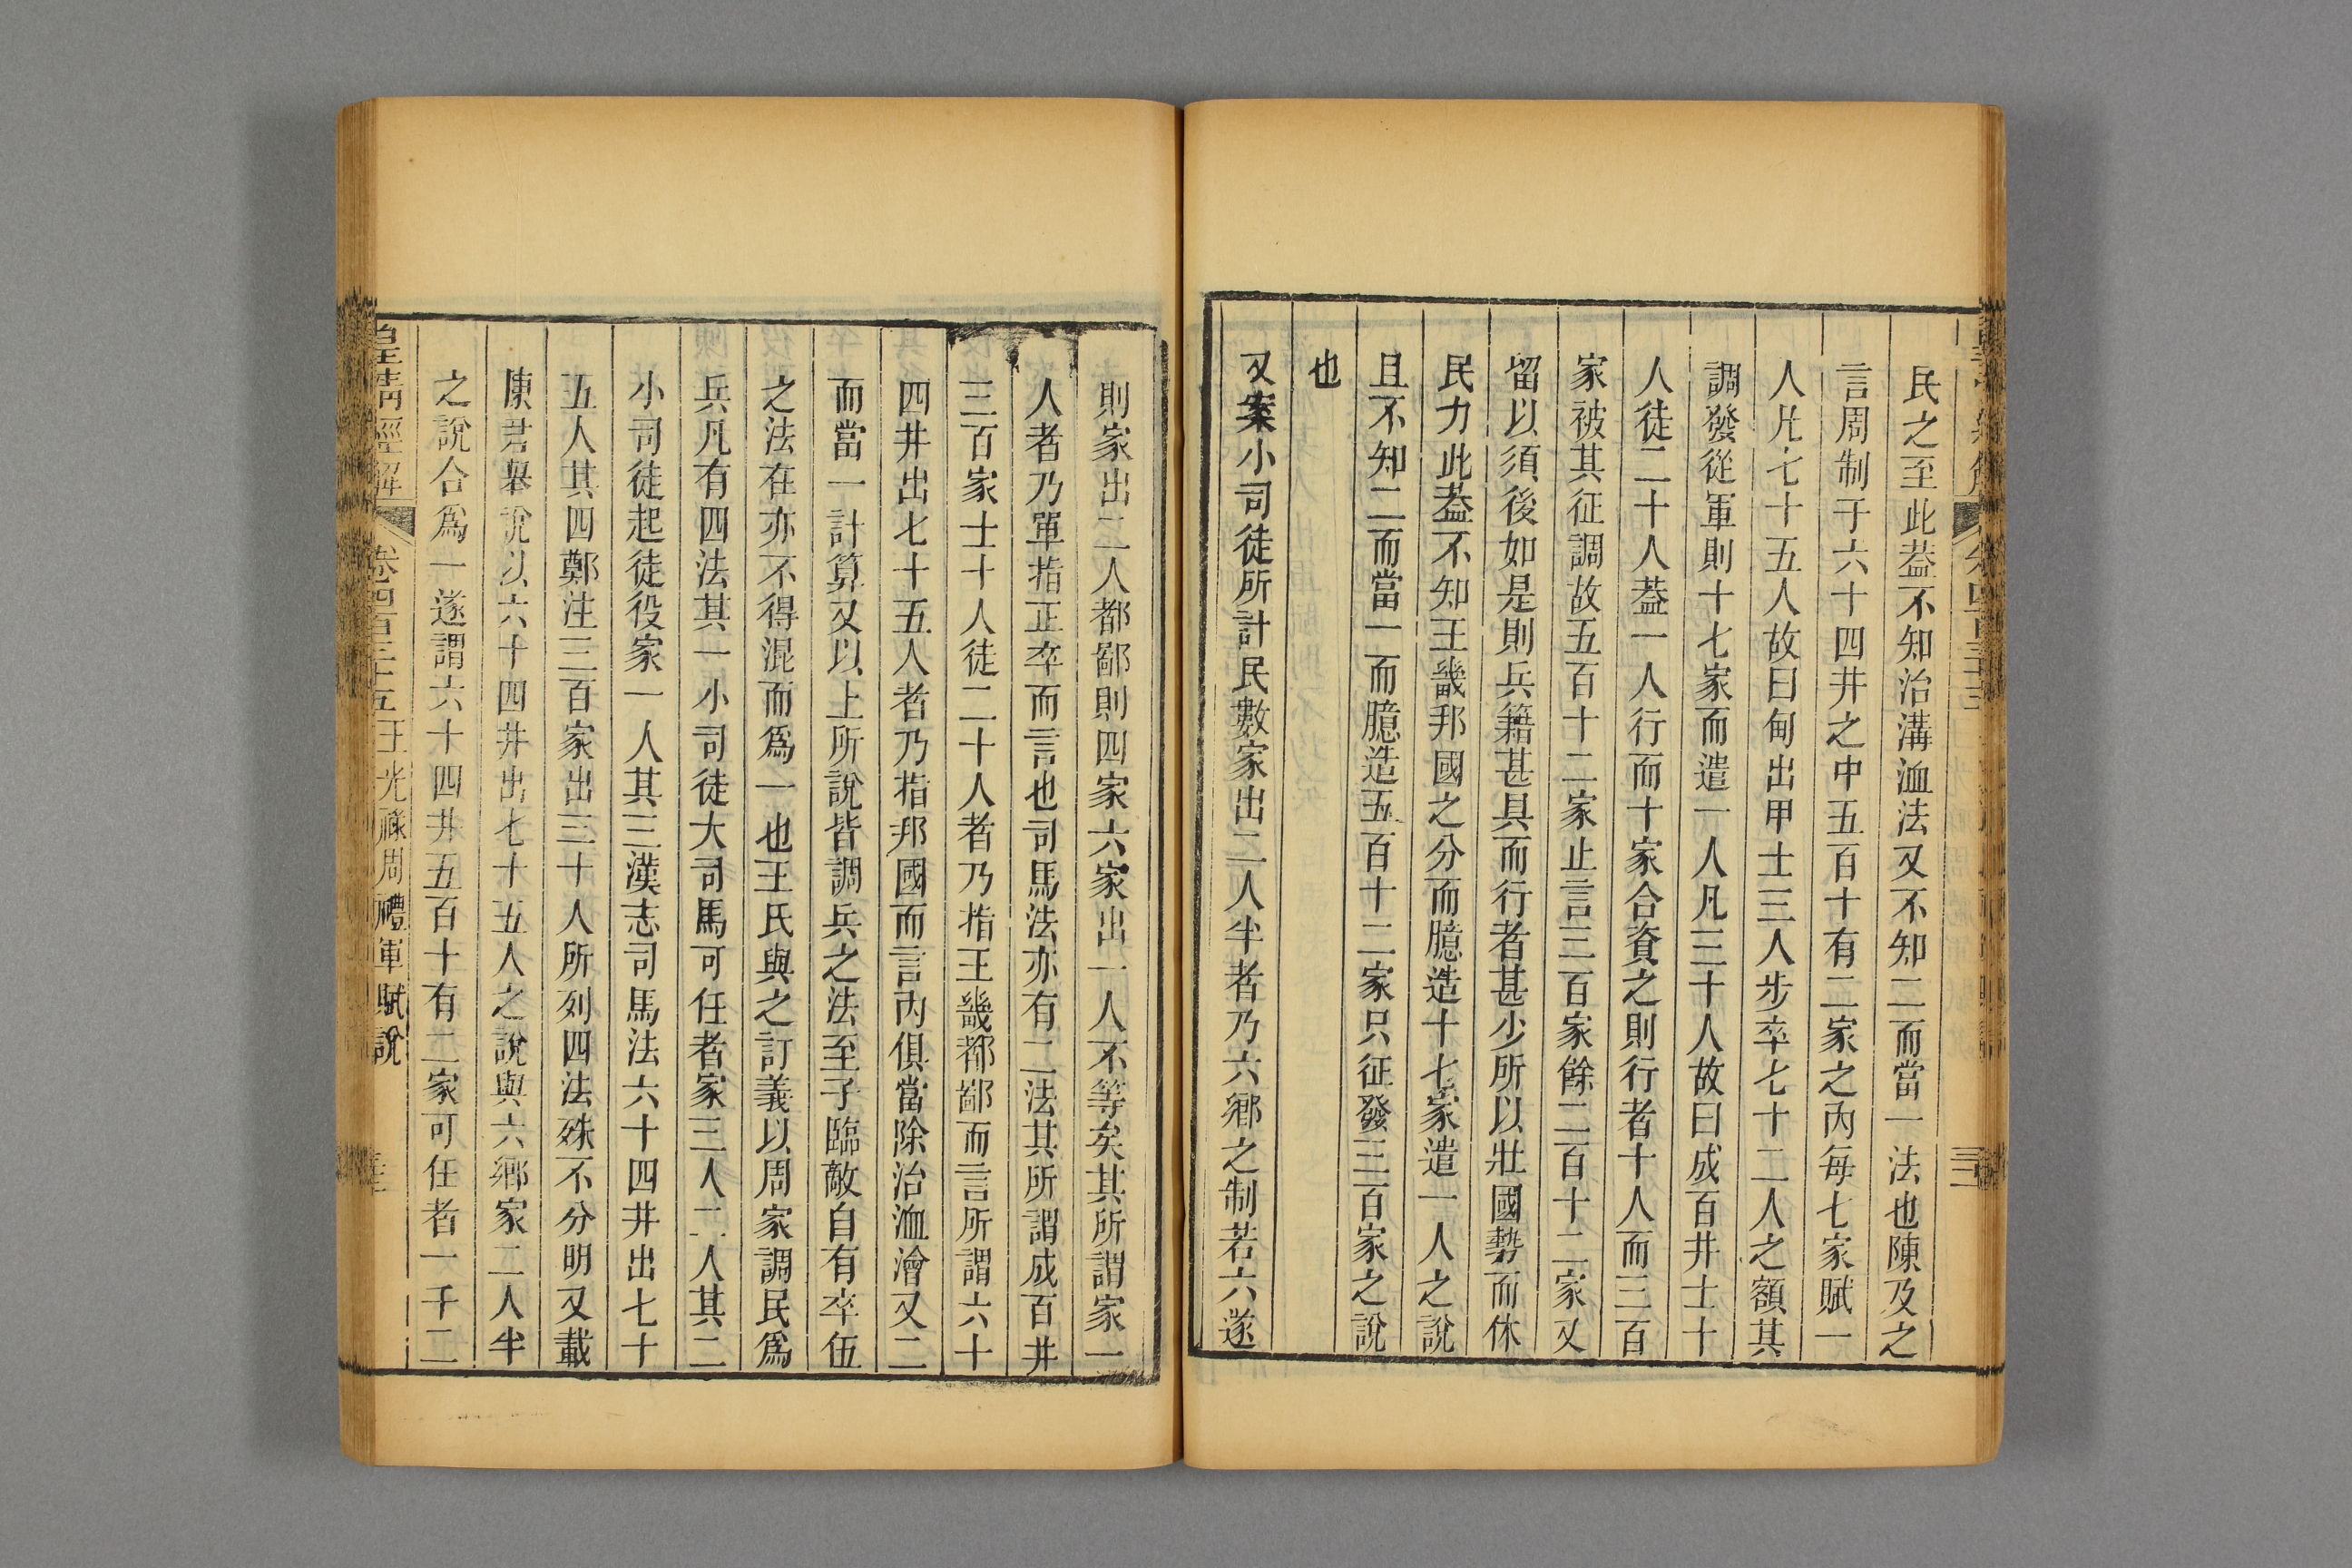 民之至此葢不知治溝洫法又不知二而當一法也陳及之
言周制于六十四井之中五百十有二家之內每七家賦一
人凡七十五人故曰甸出甲士三人步卒七十二人之額其
調發從軍則十七家而遣一人凡三十人故曰成百井士十
人徒二十人葢一人行而十家合資之則行者十人而三百
家被其征調故五百十二家止言三百家餘二百十二家又
留以須後如是則兵籍甚具而行者甚少所以壯國勢而休
民力此葢不知王畿邦國之分而臆造十七家遣一人之說
且不知二而當一而臆造五百十二家只征發三百家之說
也
又案小司徒所計民數家出二人半者乃六鄉之制若六遂
則家出二人都鄙則四家六家出一人不等矣其所謂家一
人者乃單指正卒而言也司馬法亦有二法其所謂成百井
三百家士十人徒二十人者乃指王畿都鄙而言所謂六十
四井出七十五人者乃指邦國而言內俱當除治洫澮又二
而當一計算又以上所說皆調兵之法至于臨敵自有卒伍
之法在亦不得混而爲一也王氏與之訂義以周家調民爲
兵凡有四法其一小司徒大司馬可任者家三人二人其二
小司徒起徒役家一人其三漢志司馬法六十四井出七十
五人其四鄭注三百家出三十人所列四法殊不分明又載
陳君舉說以六十四井出七十五人之說與六鄉家二人半
之說合爲一遂謂六十四井五百十有二家可任者一千二
皇清經解 卷四百三十五 王光祿周禮軍賦說